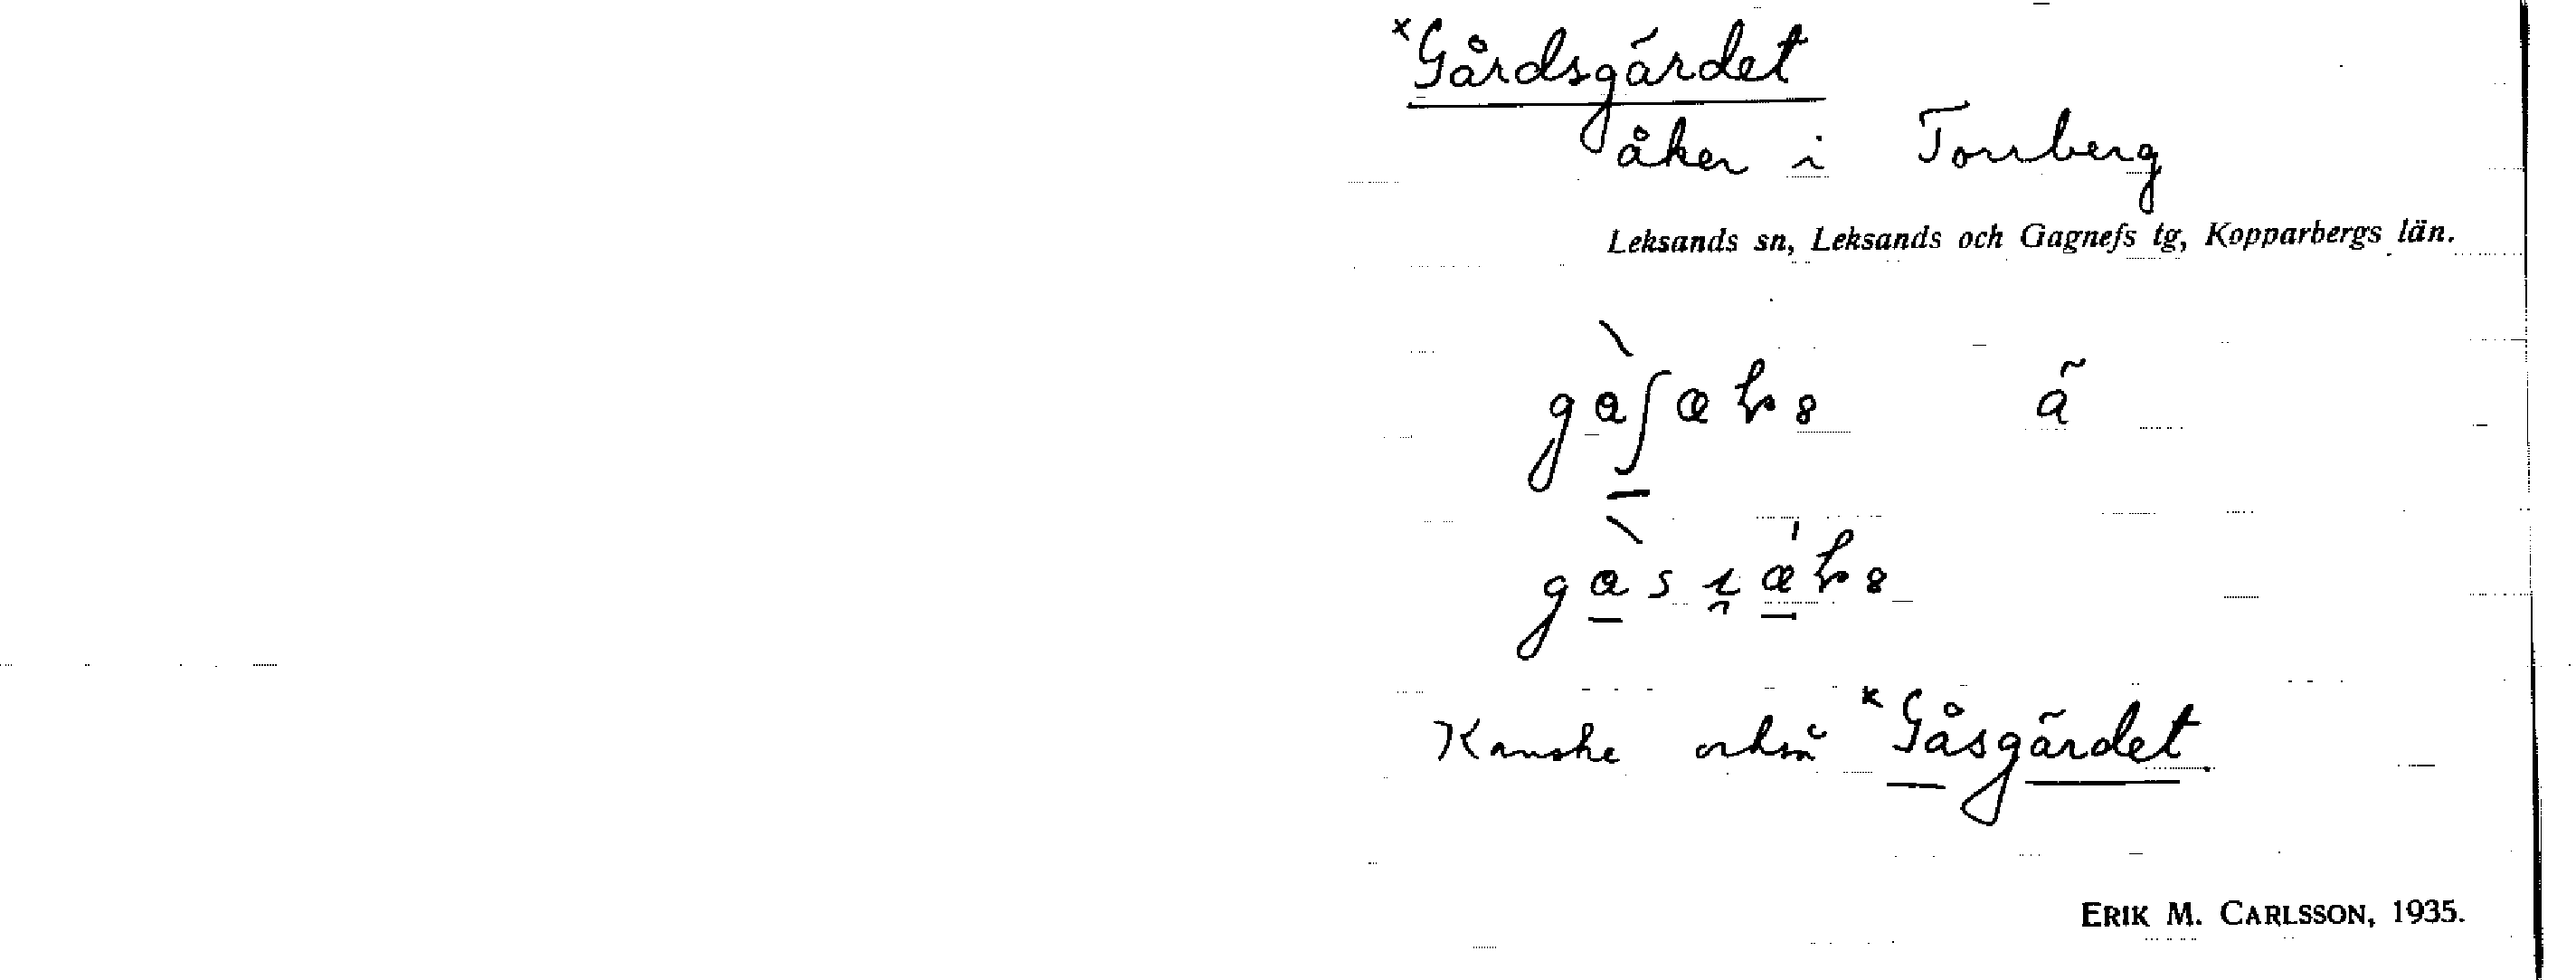 ×Gårdsgärdet
åker i Torrberg
Leksands sn, Leksands och Gagnefs tg, Kopparbergs län.
Kanske också ×Gåsgärdet.
ERIK M. CARLSSON, 1935.